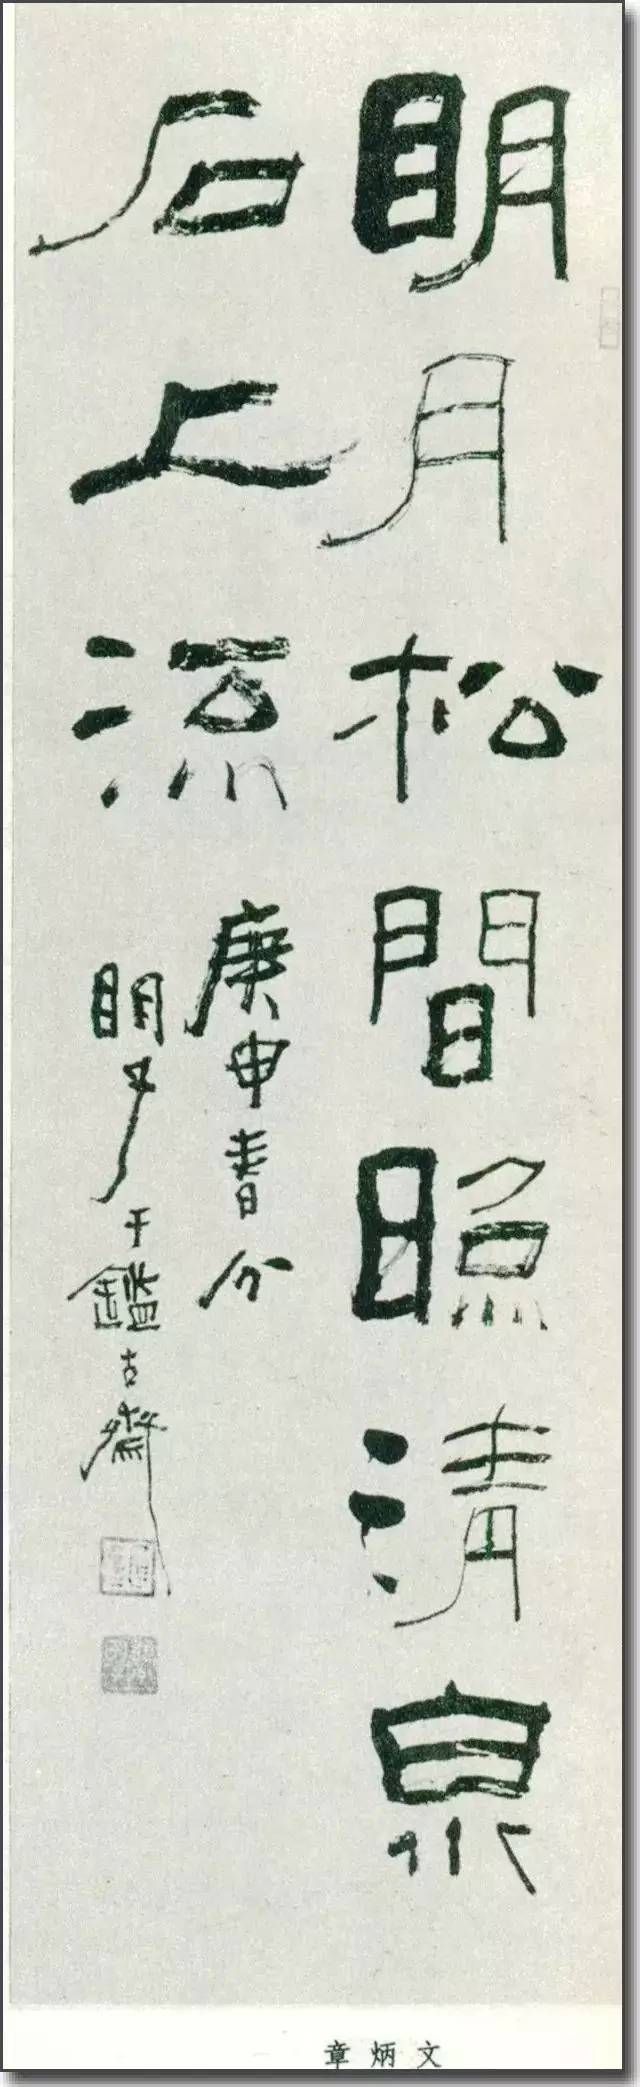 明月松間照清泉
石上流
庚申春分
于鑑古齋
章炳文